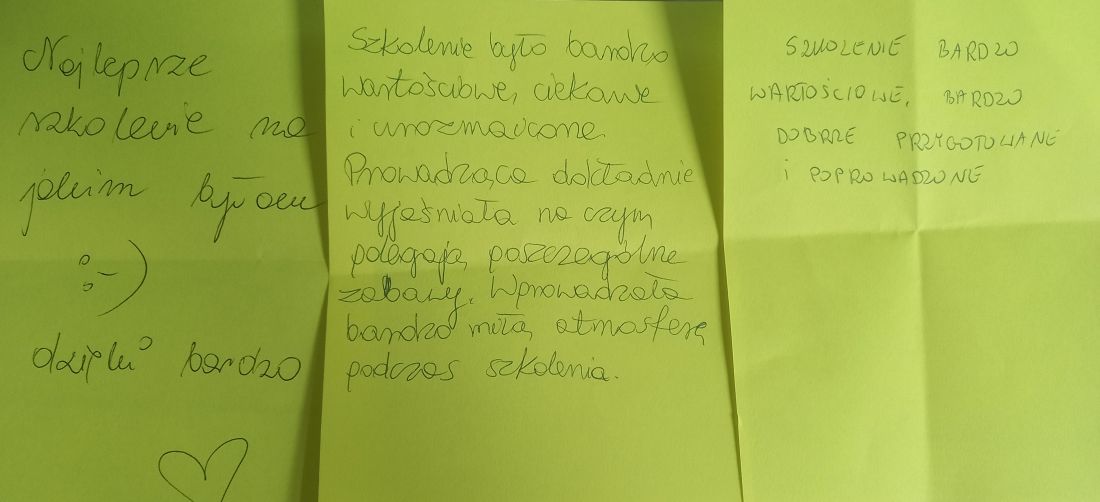 Najlepsze
szkolenie na
jakim byłam
:-)
dzięki bardzo
Szkolenie było bardzo
wartościowe, ciekawe
i urozmaicone.
Prowadząca dokładnie
wyjaśniała na czym
polegają poszczególne
zabawy. Wprowadzała
bardzo miłą atmosferę
podczas szkolenia.
SZKOLENIE BARDZO
WARTOŚCIOWE, BARDZO
DOBRZE PRZYGOTOWANE
i POPROWADZONE